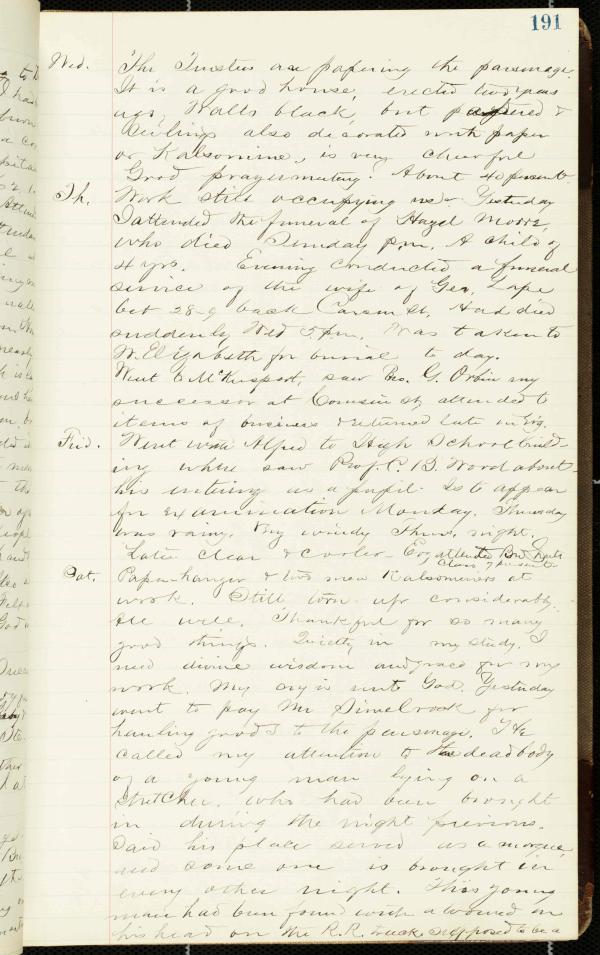 191
Wed. The Trustees are papering the parsonage.
It is a good house, erected two years
ago, Walls black, but papered &
Ceilings also decorated with paper
or Kalsomine, is very cheerful
Good prayermeeting. About 40 present.
Th. Work still occupying us. Yesterday
I attended the funeral of Hazel Moore,
who died Sunday p.m. A child of
4 yrs. Evening conducted a funeral
service of the wife of Geo. Lape
bet 28-9 back Carson St, Had died
suddenly Wed 5 pm, Was taken to
W. Elizabeth for burial to day.
Went to McKeesport, saw Bro. G. Orbin my
successor at Cousin St, attended to
items of business & returned late in Evg.
Frid. Went with Alfred to High School build-
ing where saw Prof. C. B. Wood about
his entering as a pupil. Is to appear
for examination Monday. Thursday
was rainy. Very windy Thurs. night.
Later clear & cooler - Evg attended Bro.
Class, 7 present.
Sat. Paper-hanger & two men Kalsominers at
work. Still torn up considerably.
All well. Thankful for so many
good things. Quietly in my study. I
need divine wisdom and grace for my
work. My cry is unto God. Yesterday
went to pay Mr. Simelrook for
hauling goods to the parsonage. He
called my attention to the dead body
of a young man lying on a
stretcher, who had been brought
in during the night previous.
Said his place served as a morgue
and some one is brought in
every other night. This young
man had been found with a wound in
his head on the R.R. track supposed to be a